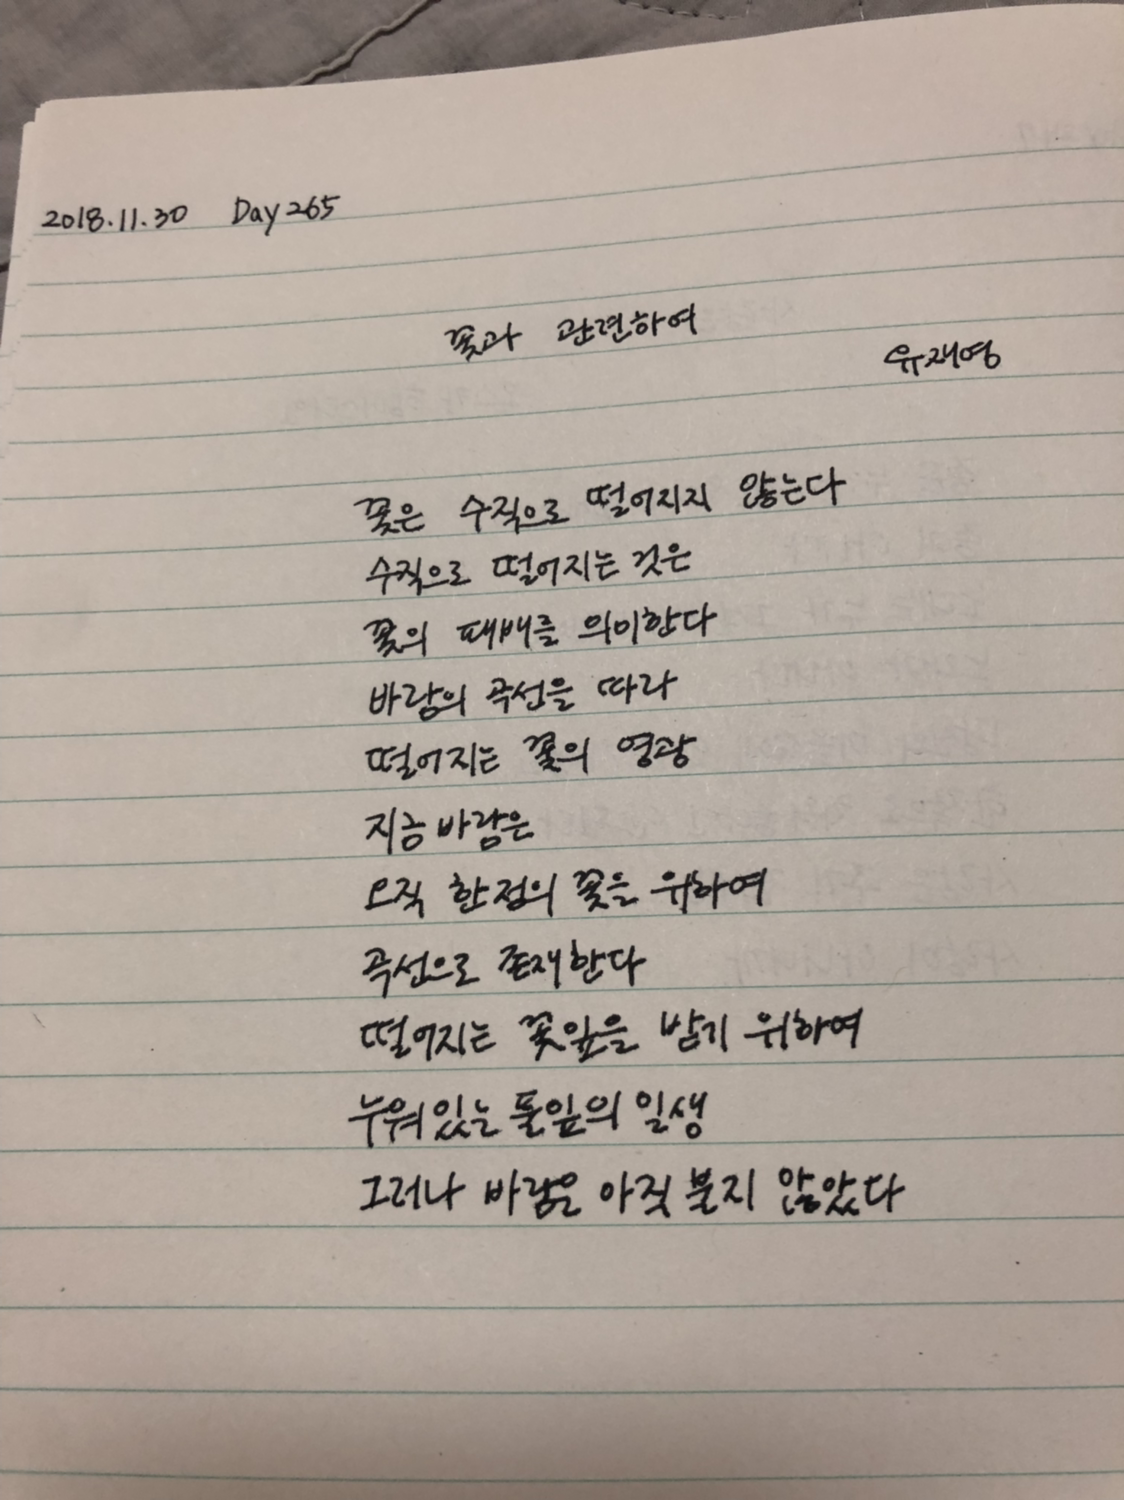 2018.11.30 Day 265
꽃과 관련하여
유재영
꽃은 수직으로 떨어지지 않는다
수직으로 떨어지는 것은
꽃의 패배를 의미한다
바람의 곡선을 따라
떨어지는 꽃의 영광
지금 바람은
오직 한 점의 꽃을 위하여
곡선으로 존재한다
떨어지는 꽃잎을 받기 위하여
누워있는 풀잎의 일생
그러나 바람은 아직 불지 않았다